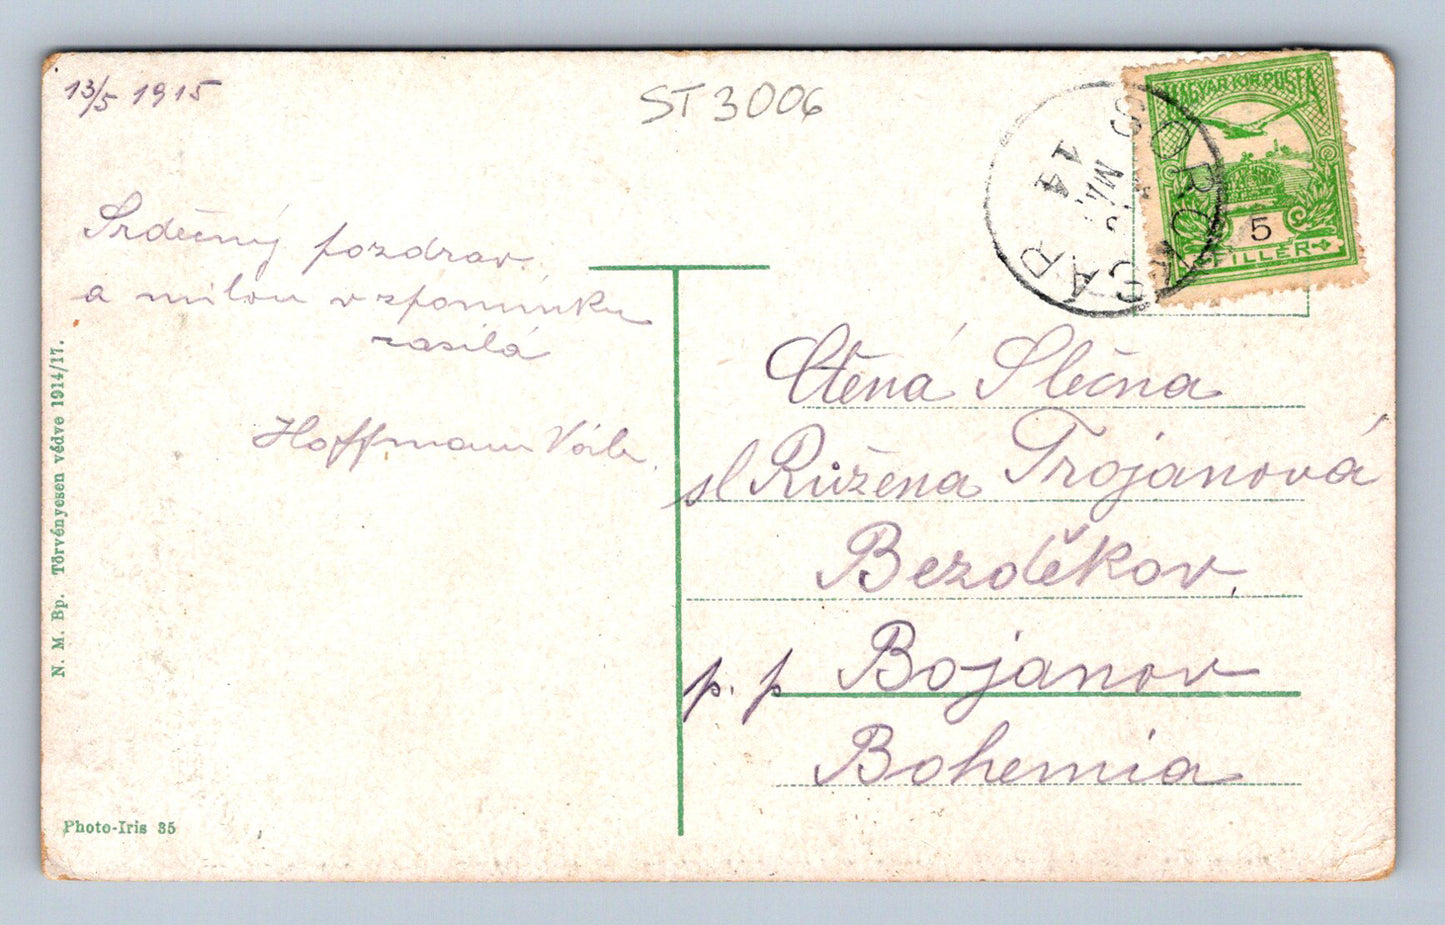 13/5 1915
ST 3006
MAGYAR KIR. POSTA
5
FILLÉR
SOROKSÁR
14
Srdečný pozdrav
a milou vzpomínku
zasílá
Hoffmann
Ctěná Slečna
sl Růžena Trojanová
Bezděkov,
p. p Bojanov
Bohemia
N. M. Bp. Törvényesen védve 1914/17.
Photo-Iris 35